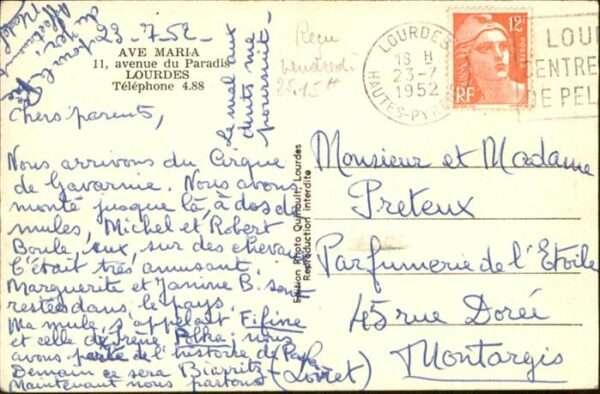 23-7-52
AVE MARIA
11, avenue du Paradis
LOURDES
Téléphone 4.88
Chers parents,
Nous arrivons du Cirque
de Gavarnie. Nous avons
monté jusque là, à dos de
mules, Michel et Robert
Boule, eux, sur des chevaux
C'était très amusant.
Marguerite et Janine B. sont
restées dans le pays
Ma mule, s'appelait Fifine
et celle de Irène, Polka; nous
avons parlé de l'histoire de
Demain ce sera Biarritz
Maintenant nous partons
Le mal aux
dents me
poursuit
Reçu
vendredi
25
LOURDES
18 H
23-7
1952
HAUTES-PYR
12F
RF
LOU
CENTRE
DE PEL
Edition Photo Lourdes
Reproduction interdite
Monsieur et Madame
Preteux
Parfumerie de l'Etoile
45 rue Dorée
Montargis
(Loiret)